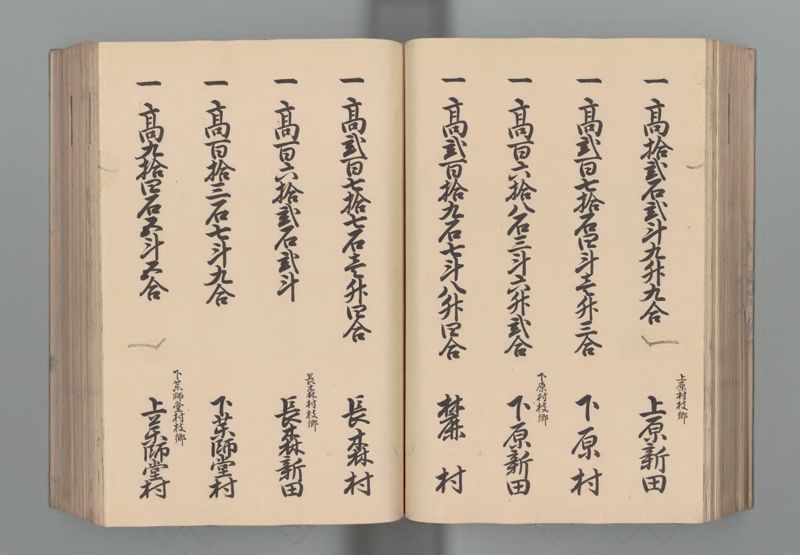 一 高拾弐石弐斗九升九合
上原村枝郷
上原新田
一 高弐百七拾石四斗壱升三合
下原村
一 高百六拾八石三斗六升弐合
下原村枝郷
下原新田
一 高弐百拾九石七斗八升四合
麓村
一 高弐百七拾七石壱升四合
長森村
一 高百六拾弐石弐斗
長森村枝郷
長森新田
一 高百拾三石七斗九合
下薬師堂村
一 高九拾四石五斗五合
下薬師堂村枝郷
上薬師堂村